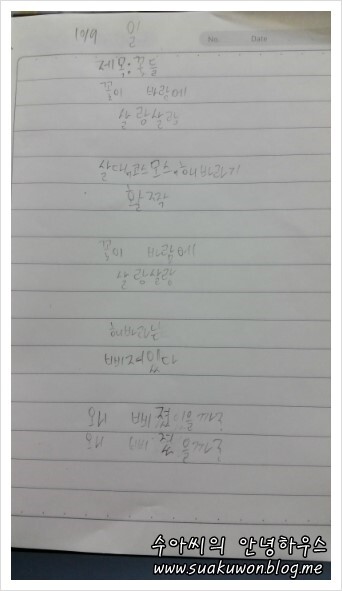 10/9 일
No.
Date
제목:꽃들
꽃이 바람에
살랑살랑
코스모스·해바라기
활짝
꽃이 바람에
살랑살랑
해바라기는
삐져있다
왜 삐졌을까?
왜 삐졌을까?
수아씨의 안녕하우스
www.suakuwon.blog.me